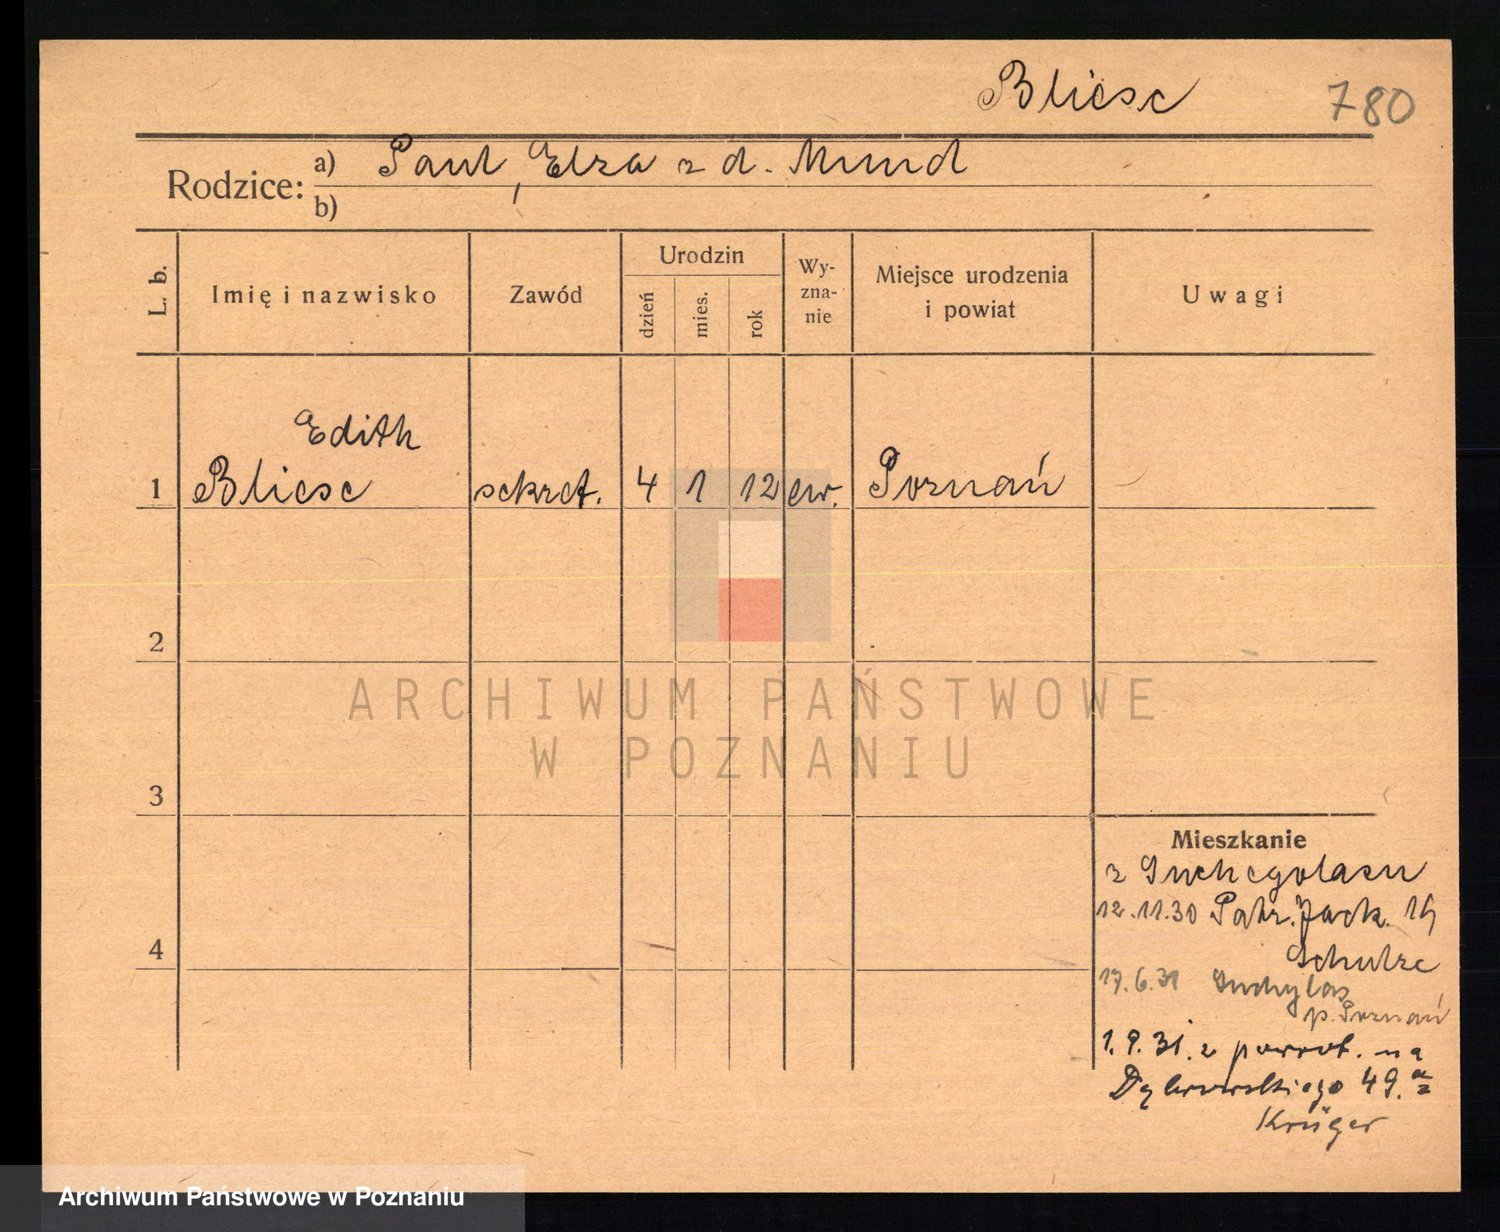 Bliese 780
Rodzice: a) Paul, Elza z d. Mund
b)
L. b. Imię i nazwisko Zawód Urodzin dzień mies. rok Wy-zna-nie Miejsce urodzenia i powiat Uwagi
Edith
1 Bliese sekret. 4 1 12 ew. Poznań
2
ARCHIWUM PAŃSTWOWE
W POZNANIU
3
Mieszkanie
z Suchegolasu
12.11.30 Patr. Jack.
4
Schulze
17.6.31 Suchylas
p. Poznań
1.9.31. z powrot. na
Dąbrowskiego 49.
Krüger
Archiwum Państwowe w Poznaniu